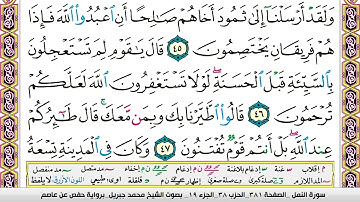 وَلَقَدْ أَرْسَلْنَآ إِلَىٰ ثَمُودَ أَخَاهُمْ صَـٰلِحًا أَنِ ٱعْبُدُوا۟ ٱللَّهَ فَإِذَا
هُمْ فَرِيقَانِ يَخْتَصِمُونَ ٤٥ قَالَ يَـٰقَوْمِ لِمَ تَسْتَعْجِلُونَ
بِٱلسَّيِّئَةِ قَبْلَ ٱلْحَسَنَةِ ۖ لَوْلَا تَسْتَغْفِرُونَ ٱللَّهَ لَعَلَّكُمْ
تُرْحَمُونَ ٤٦ قَالُوا۟ ٱطَّيَّرْنَا بِكَ وَبِمَن مَّعَكَ ۚ قَالَ طَـٰٓئِرُكُمْ
عِندَ ٱللَّهِ ۖ بَلْ أَنتُمْ قَوْمٌ تُفْتَنُونَ ٤٧ وَكَانَ فِى ٱلْمَدِينَةِ تِسْعَةُ
سورة النمل الصفحة ٣٨١ الحزب ٣٨ الجزء ١٩ بصوت الشيخ محمد جبريل برواية حفص عن عاصم